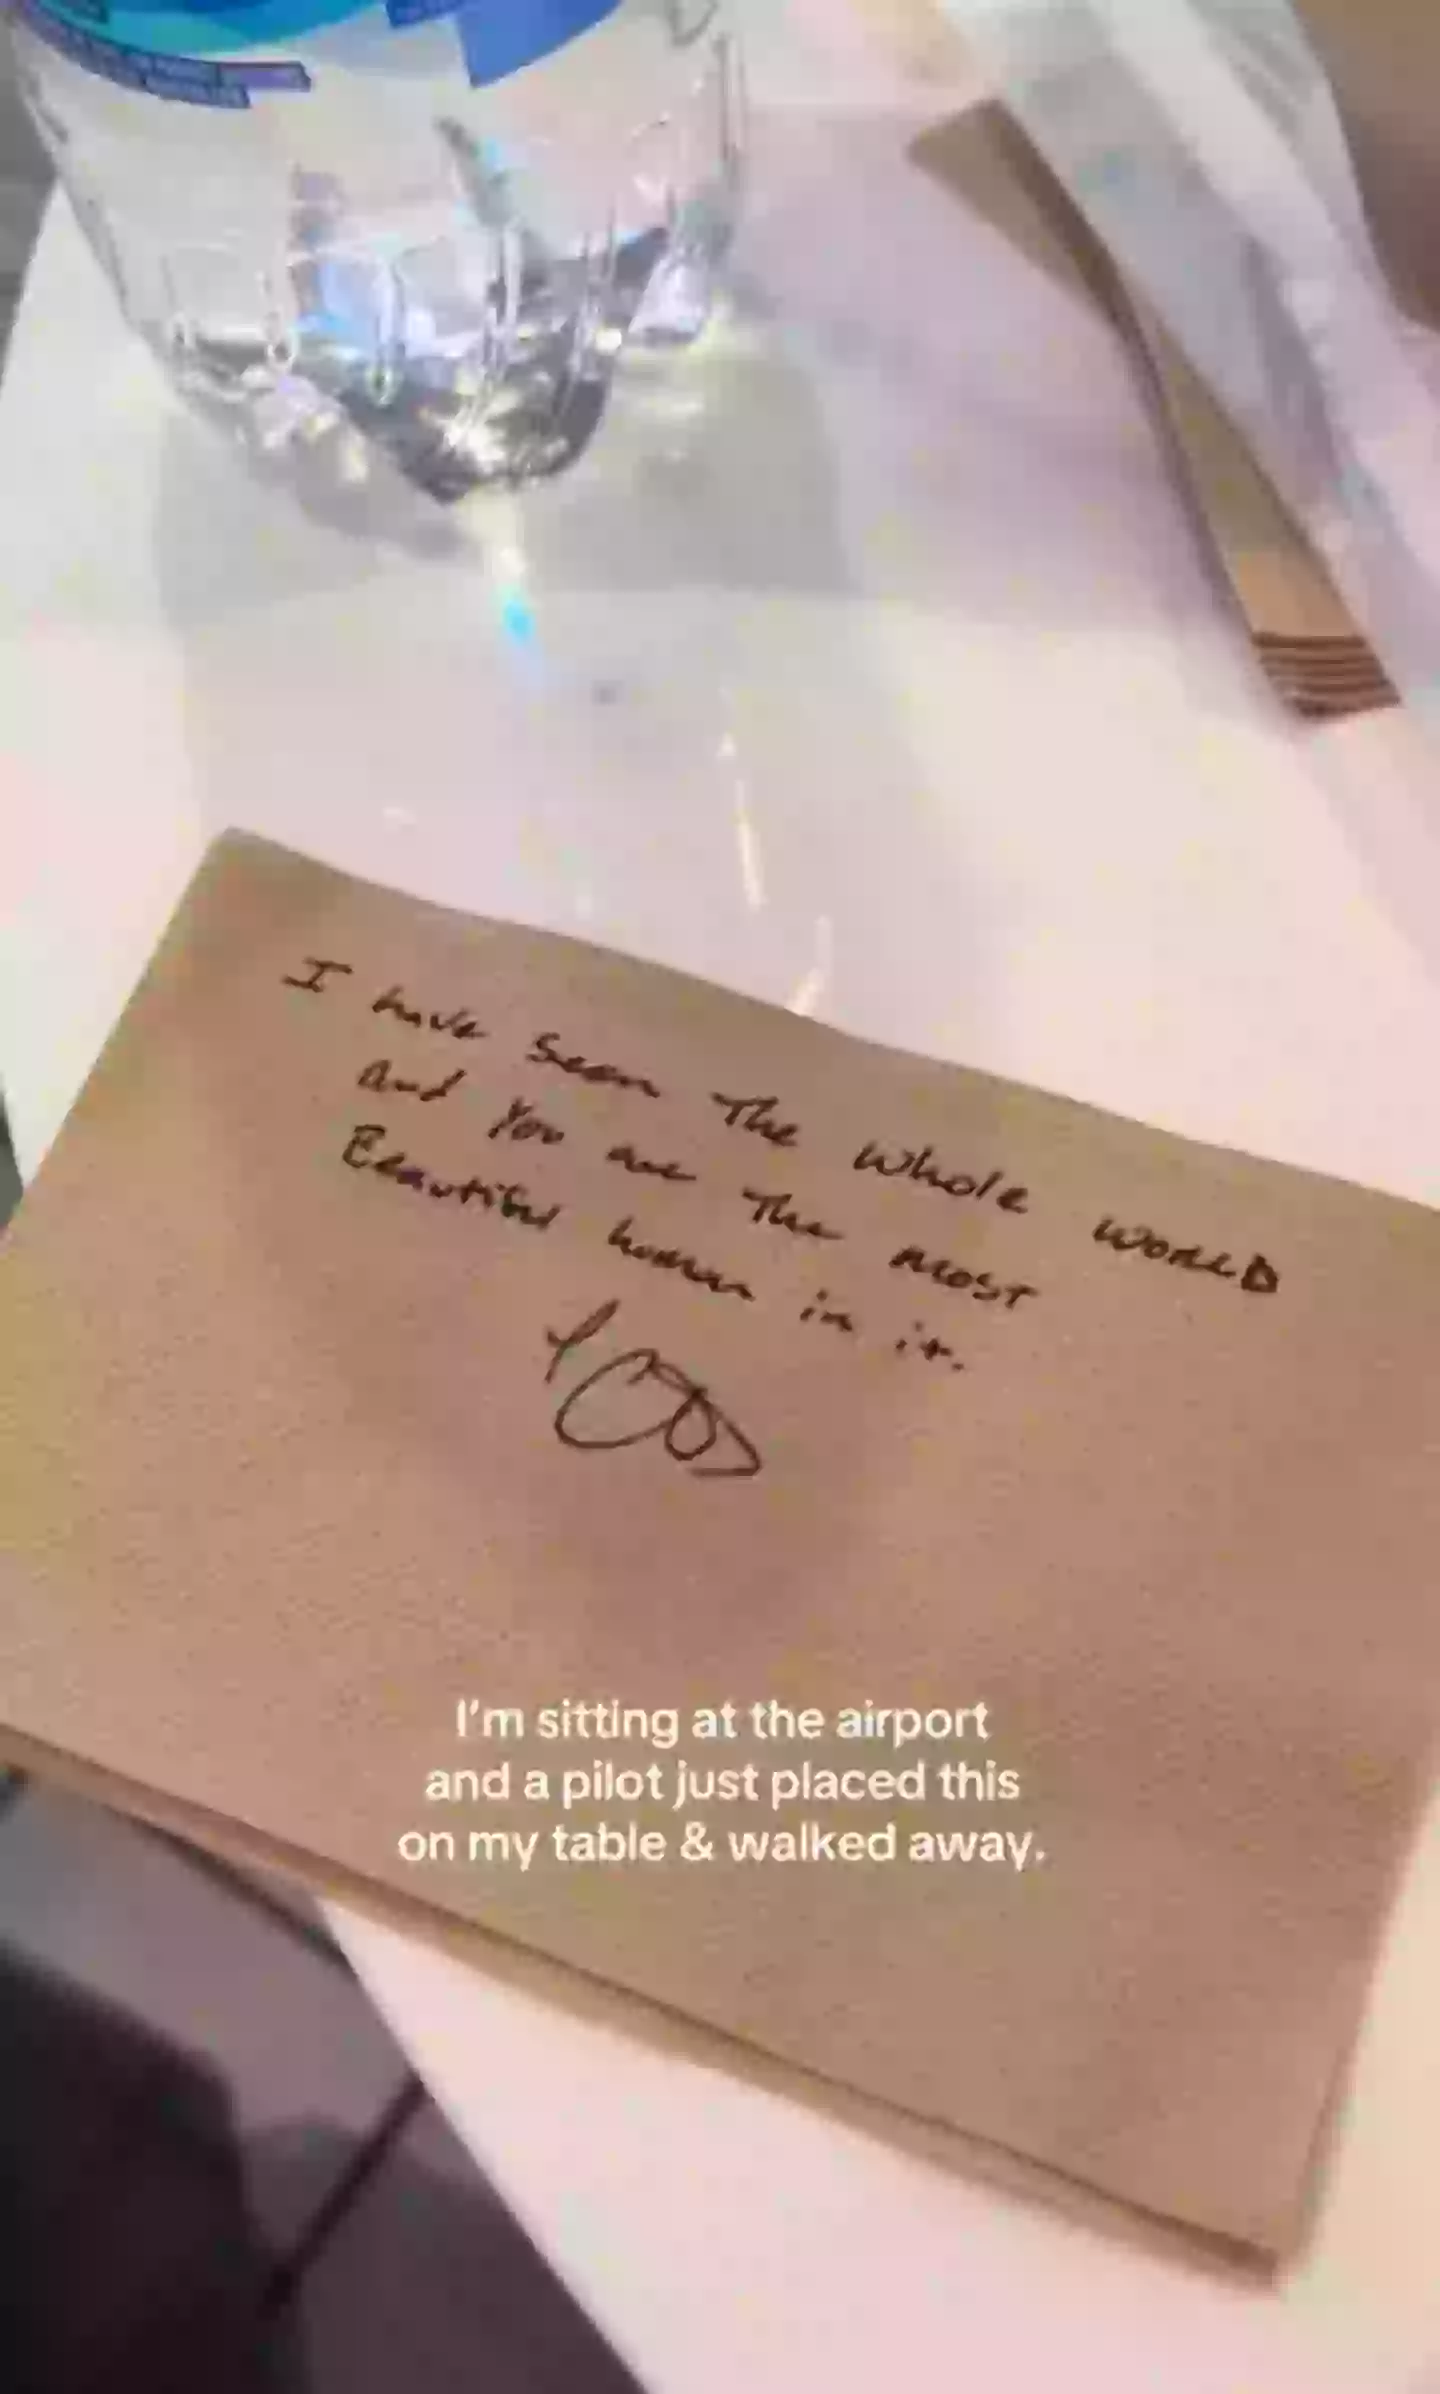 I have seen The whole WORLD
And You are The most
Beautiful human in it.
I'm sitting at the airport
and a pilot just placed this
on my table & walked away.